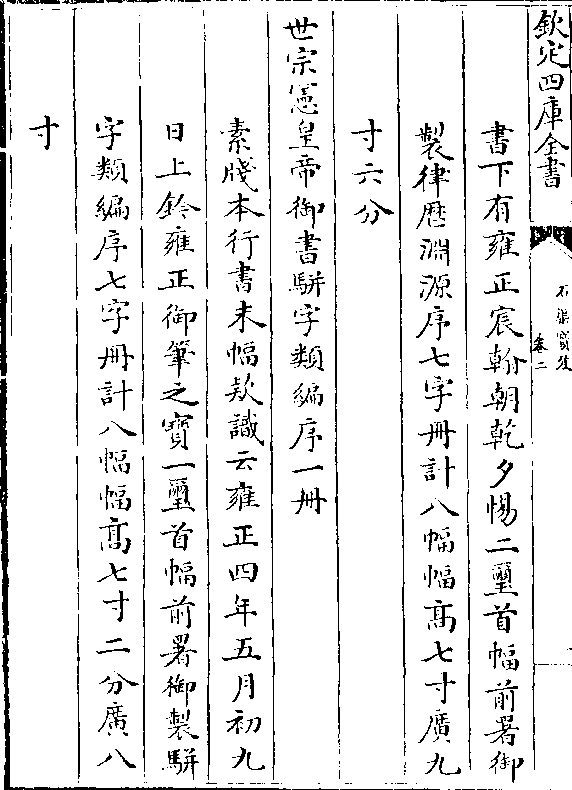 欽定四庫全書
石渠寶笈
卷二
書下有雍正宸翰朝乾夕惕二璽首幅前署御
製律歷淵源序七字冊計八幅幅高七寸廣九
寸六分
世宗憲皇帝御書駢字類編序一冊
素牋本行書末幅款識云雍正四年五月初九
日上鈐雍正御筆之寶一璽首幅前署御製駢
字類編序七字冊計八幅幅髙七寸二分廣八
寸